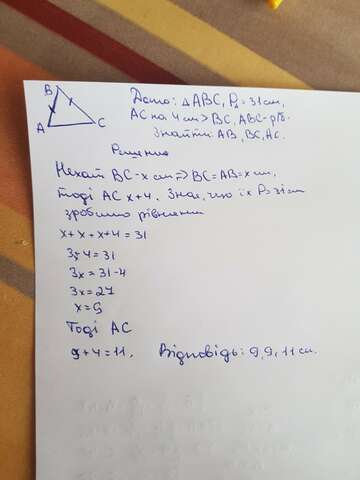 B
A
C
Дано: △ABC, P△=31см,
AC на 4 см > BC, ABC-р/б.
Знайти: AB, BC, AC.
Рішення
Нехай BC-x см => BC=AB=x см,
тоді AC x+4. Знаємо, що їх P=31см
зробимо рівняння
x+x+x+4=31
3x+4=31
3x=31-4
3x=27
x=9
Тоді AC
9+4=11, Відповідь: 9,9,11см.